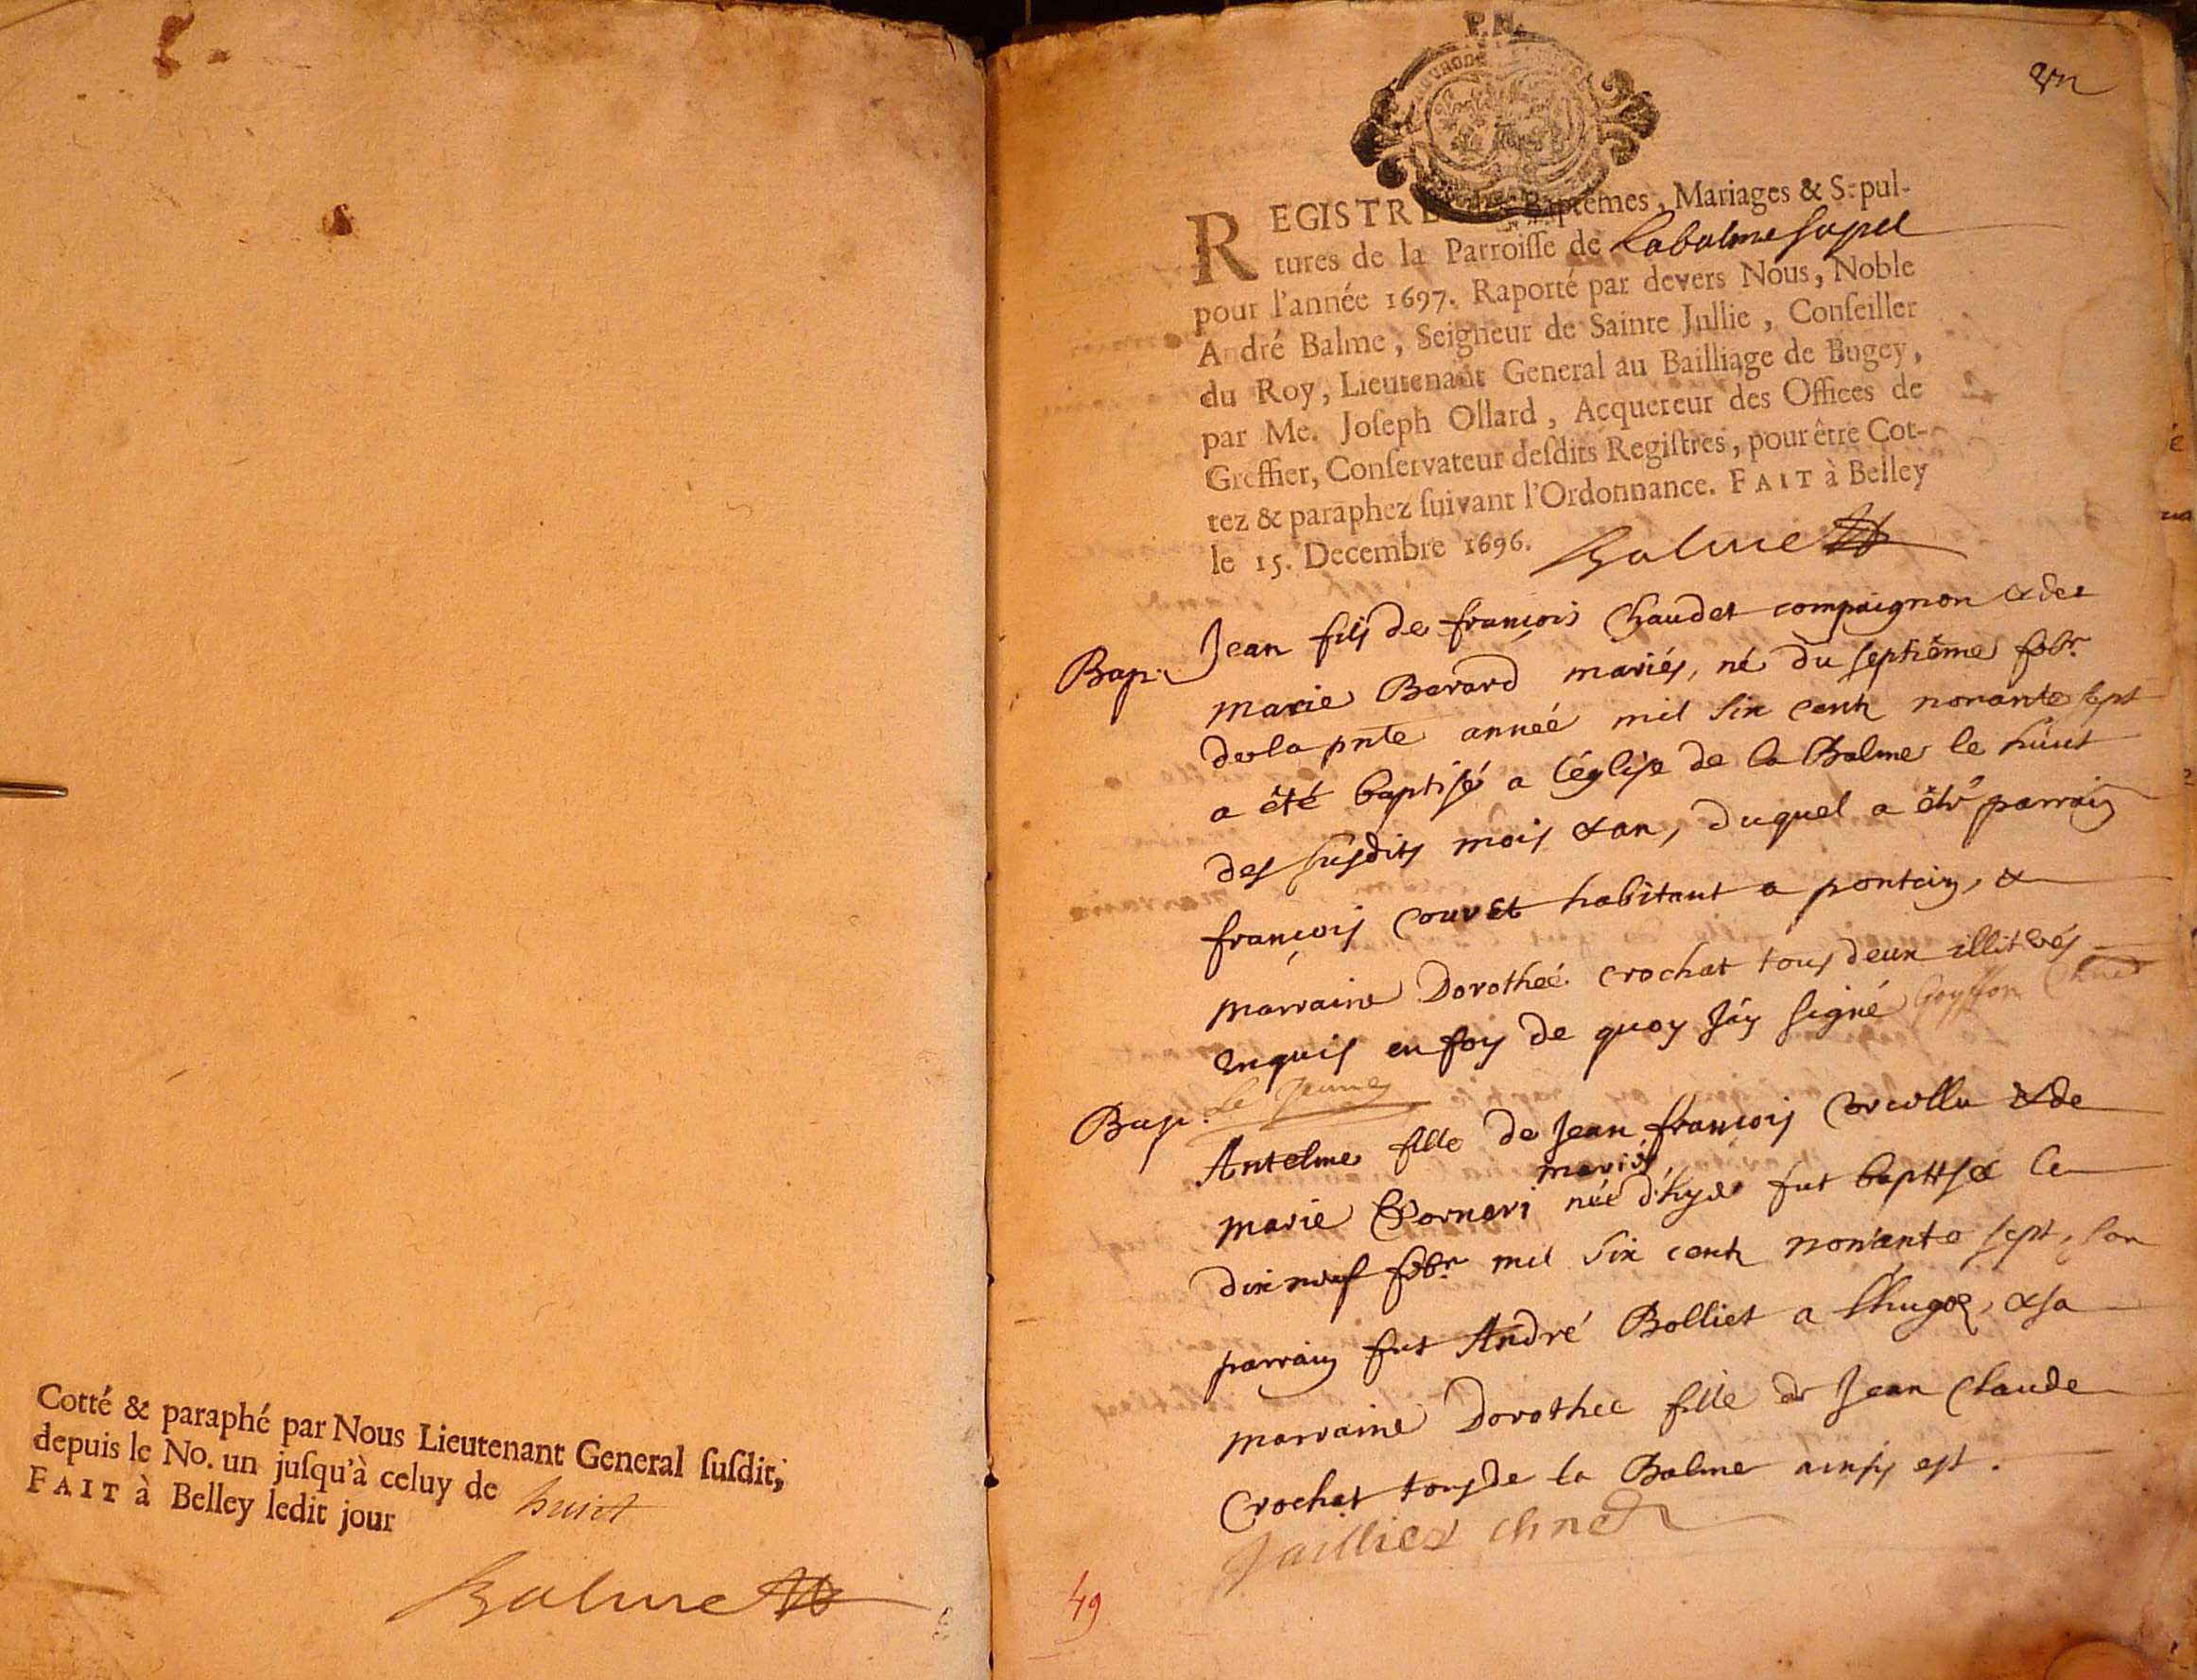 Cotté & paraphé par Nous Lieutenant General ſuſdit,
depuis le No. un juſqu'à celuy de huict
FAIT à Belley ledit jour
Balme
un
REGISTRE des Baptêmes, Mariages & Sepul-
tures de la Parroiſſe de Labalme sapel
pour l'année 1697. Raporté par devers Nous, Noble
André Balme, Seigneur de Sainte Jullie, Conſeiller
du Roy, Lieutenant General au Bailliage de Bugey,
par Me. Joſeph Ollard, Acquereur des Offices de
Greffier, Conſervateur deſdits Regiſtres, pour être Cot-
tez & paraphez ſuivant l'Ordonnance. FAIT à Belley
le 15. Decembre 1696. Balme
Bap. Jean fils de françois Chaudet compaignon & de
marie Barard mariés, né du septiême febr.
de la pnte année mil six cents nonante sept
a êté baptisé a l'église de la Balme le huict
des susdits mois & an, duquel a êté parrain
françois Couvet habitant a pontein, &
marraine Dorotheé crochat tous deux illiterés
enquis en foy de quoy J'ay signé
Bap. le Jeune
Antelme fille de Jean françois & de
mariés
marie née d'hyer fut baptisée le
dix neuf febr. mil six cents nonante sept, son
parrain fut André Bolliet a & sa
marraine Dorothee fille de Jean Claude
Crochat tous de la Balme ainsy est.
49